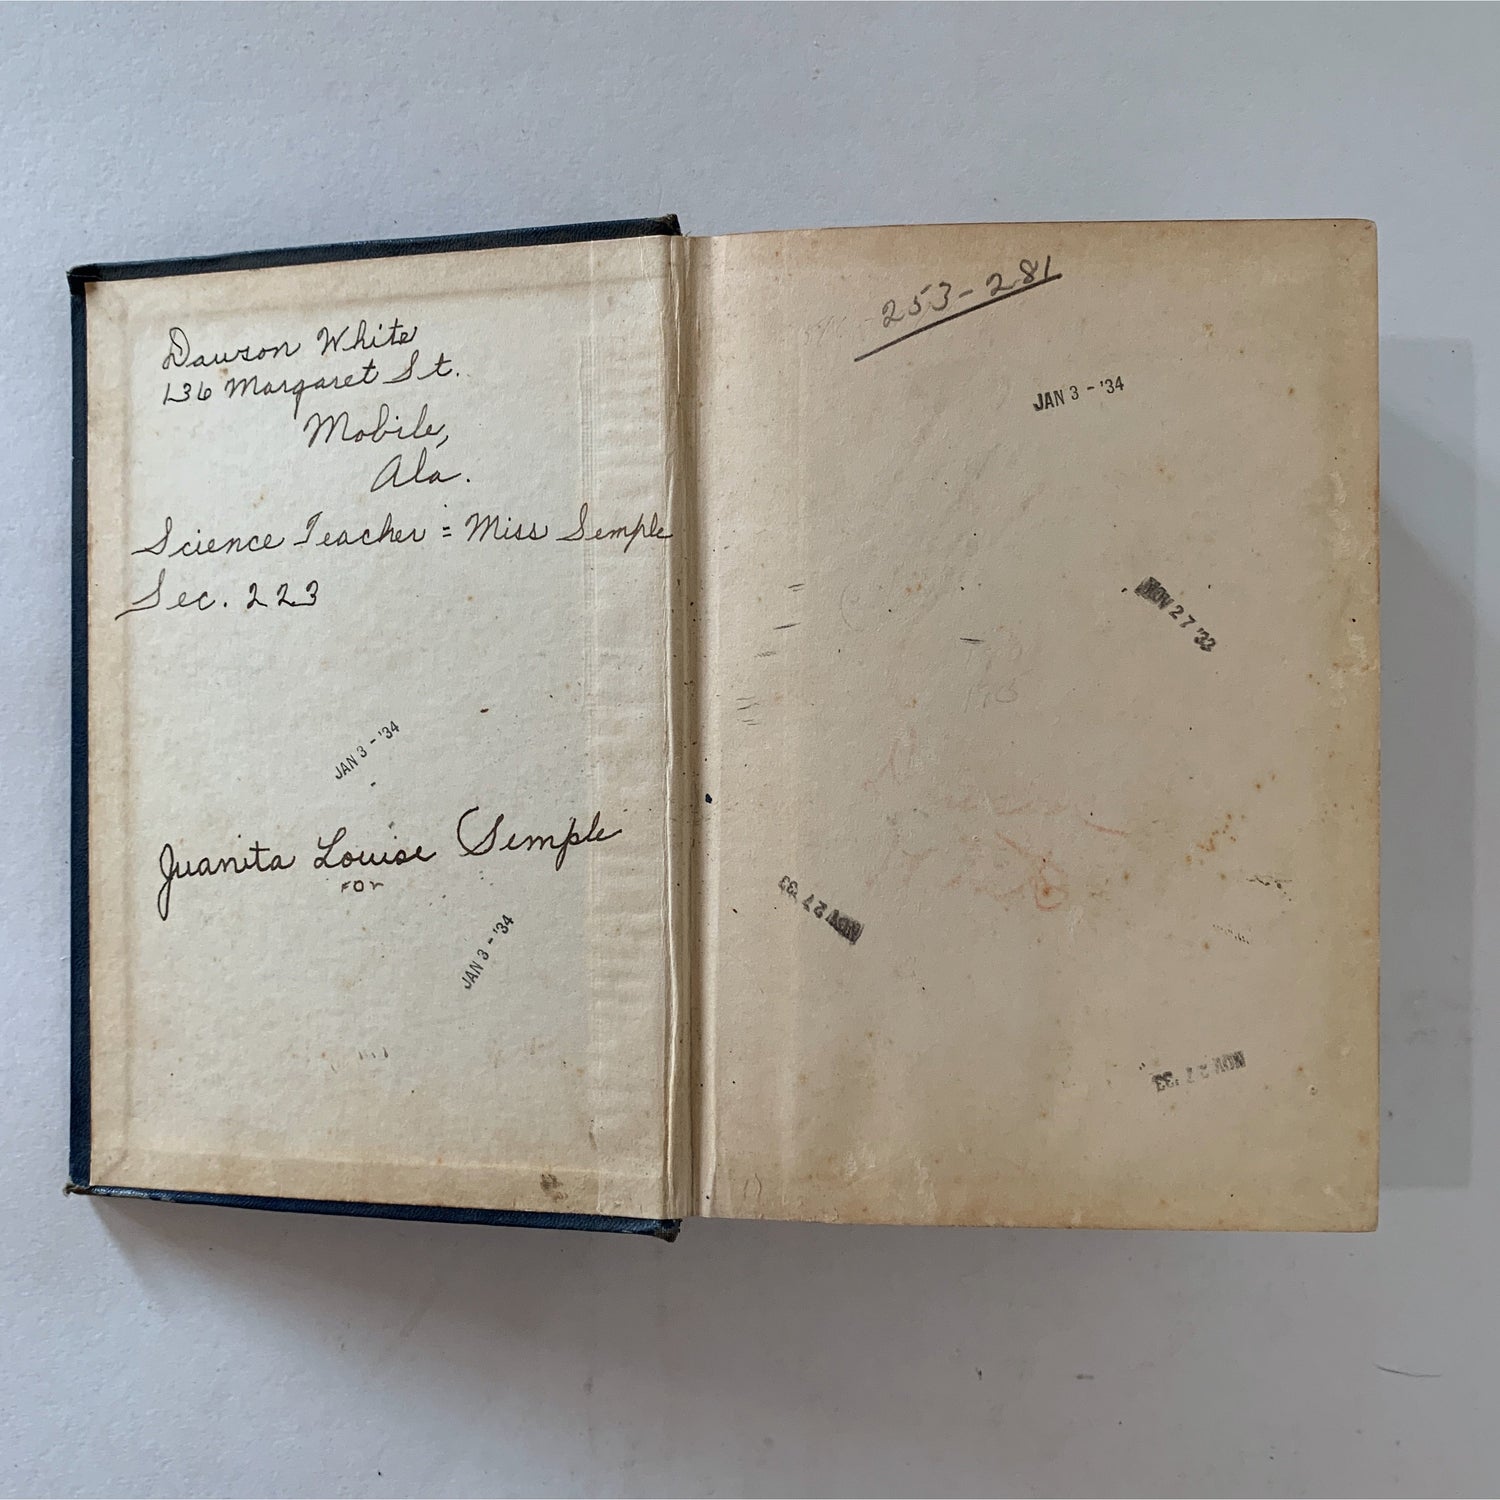 Dawson White
136 Margaret St.
Mobile,
Ala.
Science Teacher = Miss Semple
Sec. 223
JAN 3 - '34
Juanita Louise Semple
for
JAN 3 - '34
253-281
JAN 3 - '34
NOV 27 '33
NOV 27 '33
NOV 27 '33